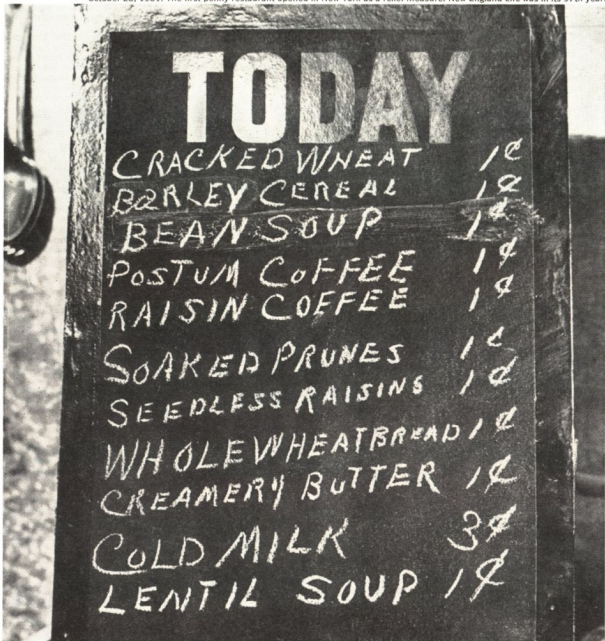 TODAY
CRACKED WHEAT 1¢
BARLEY CEREAL 1¢
BEAN SOUP 1¢
POSTUM COFFEE 1¢
RAISIN COFFEE 1¢
SOAKED PRUNES 1¢
SEEDLESS RAISINS 1¢
WHOLE WHEAT BREAD 1¢
CREAMERY BUTTER 1¢
COLD MILK 3¢
LENTIL SOUP 1¢